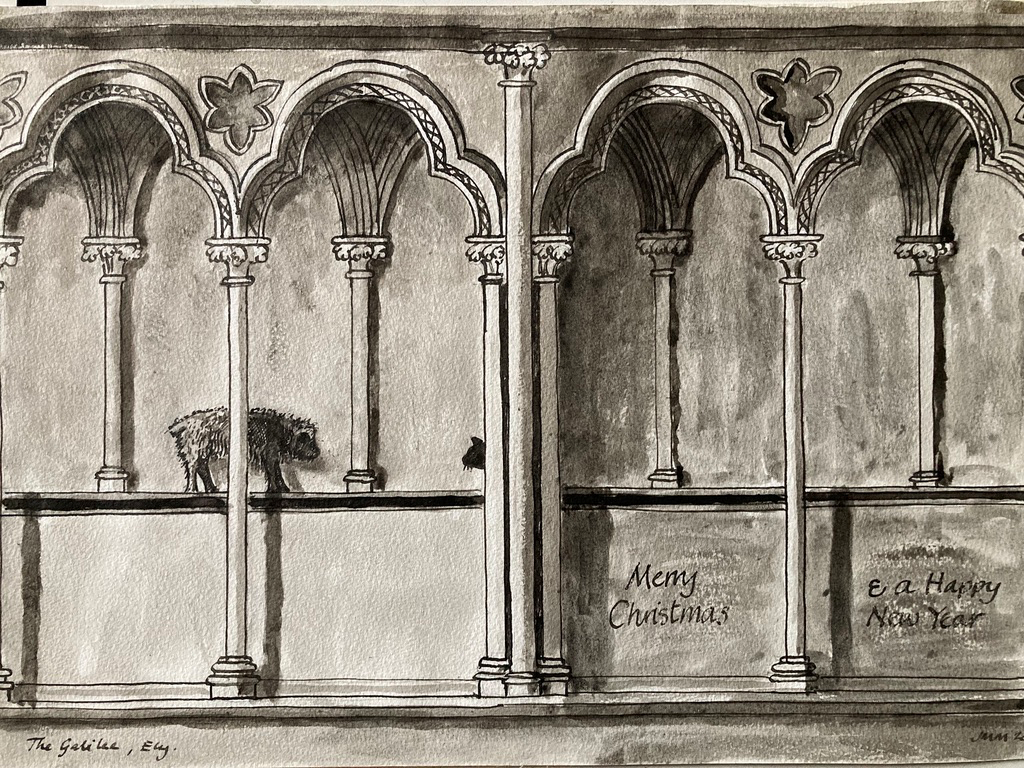 Merry
Christmas
& a Happy
New Year
The Galilee, Ely.